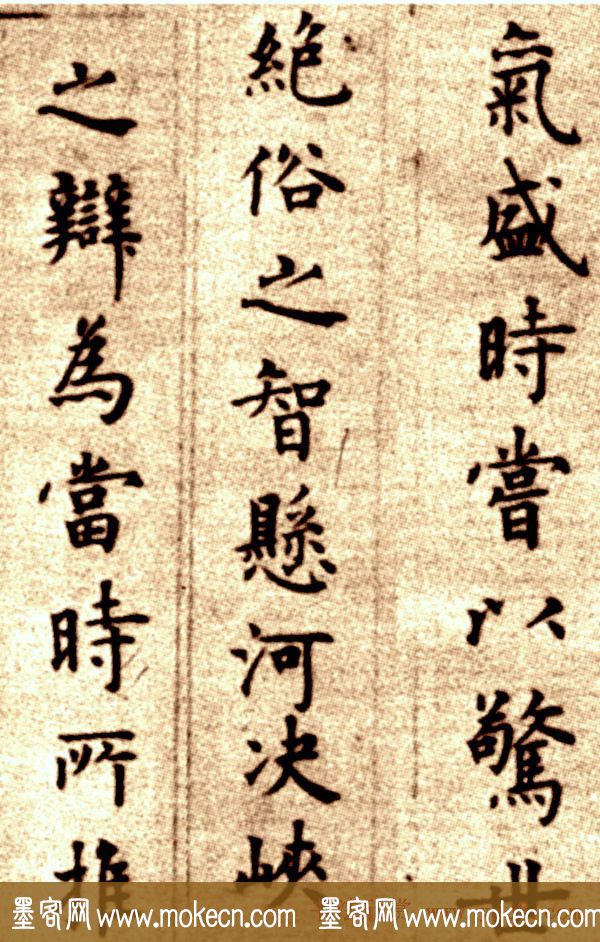 氣盛時嘗以驚世
絕俗之智懸河决峽
之辯為當時所推
墨客网 www.mokecn.com 墨客网 www.mokecn.com 墨客网